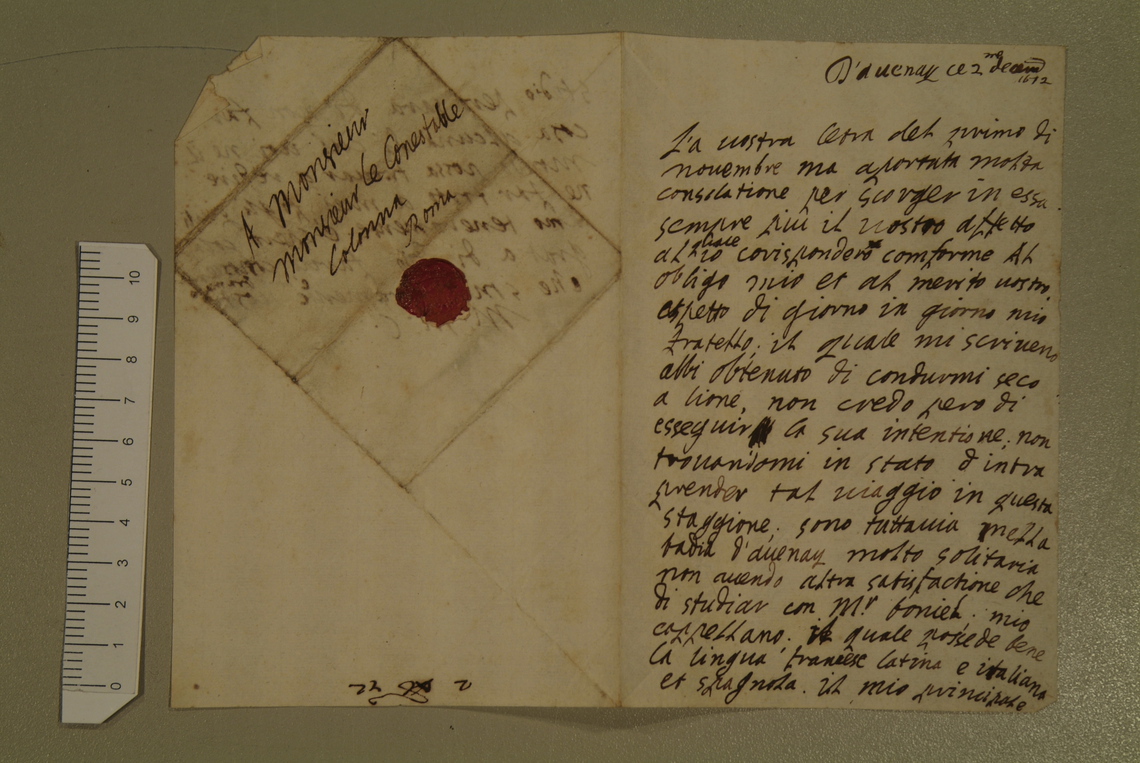 A Monsieur
Monsieur Le Conestible
Colonna
Roma
D'avenay ce 2 me decem
1672
La vostra letra del primo di
novembre ma aportata molta
consolatione per scorger in essa
sempre più il vostro affetto
al quale io corispondero comforme Al
obligo mio et al merito vostro,
aspetto di giorno in giorno mio
fratello; il quale mi scriveno
abbi obtenuto di condurmi seco
a lione, non credo pero di
esseguir la sua intentione; non
trovandomi in stato d'intra
prender tal viaggio in questa
staggione; sono tuttavia nella
badia d'avenay molto solitaria
non avendo altra satisfactione che
di studiar con Mr. boniel; mio
cappellano; il quale possede bene
la lingua francese latina e italiana
et spagnola. il mio principale
0 1 2 3 4 5 6 7 8 9 10